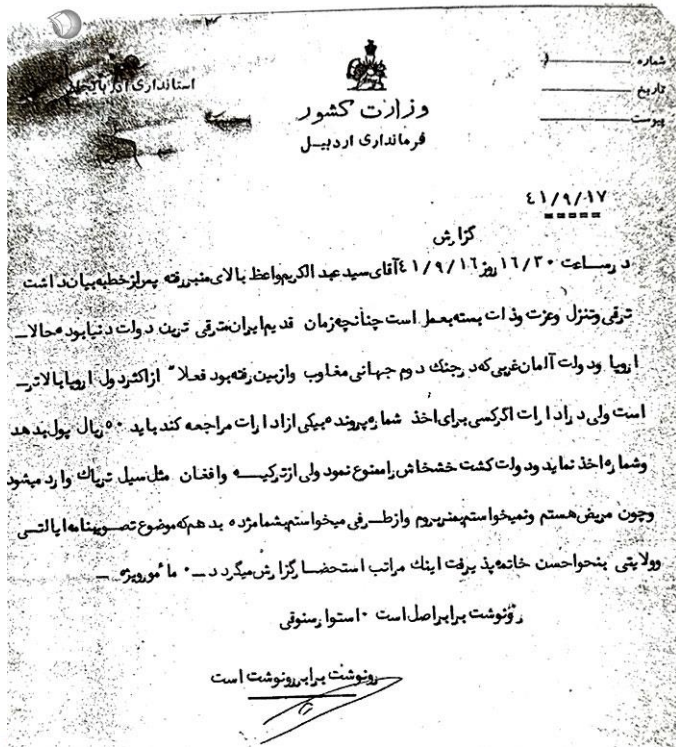 شماره
تاریخ
پیوست
استانداری آذربایجان
وزارت کشور
فرمانداری اردبیل
٤١/٩/١٧
گزارش
در ساعت ١٦/٣٠ روز ٤١/٩/١٦ آقای سید عبد الکریم واعظ بالای منبر رفته پس از خطبه بیان داشت
ترقی وتنزل وعزت وذات بسته بعمل است چنانچه زمان قدیم ایران مترقی ترین دولت دنیا بود حالا
اروپا ودولت آلمان غربی که در جنك دوم جهانی مغلوب وازبین رفته بود فعلا" از اکثر دول اروپا بالاتر
است ولی در ادارات اگر کسی برای اخذ شماره پرونده بیکی از ادارات مراجعه کند باید ٥٠ ریال پول بدهد
وشماره اخذ نماید ودولت کشت خشخاش را ممنوع نمود ولی از ترکیه وافغان مثل سیل تریاك وارد میشود
وچون مریض هستم ونمیخواستم بمنبر بروم واز طرفی میخواستم بشما مژده بدهم که موضوع تصویبنامه ایالتی
وولایتی بنحو احسن خاتمه پذیرفت اینك مراتب استحضا را گزارش میگردد ـ ٠ مأمور ویژه ـ
رونوشت برابر اصل است ٠ استوار سنوقی
رونوشت برابر رونوشت است